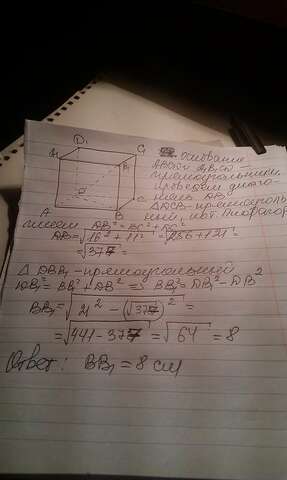 D₁
A₁ C₁
B₁
D
A B C
Основание
ABCD и A₁B₁C₁D₁
прямоугольники.
Проведем диаго-
наль DB
△DCB - прямоуголь-
ный, по т. Пифагора
имеем DB² = BC² + DC²
DB = √16² + 11² = √256 + 121 =
= √377
△ DBB₁ - прямоугольный
DB₁² = BB₁² + DB² ⇒ BB₁² = DB₁² - DB²
BB₁ = √21² - (√377)² =
= √441 - 377 = √64 = 8
Ответ: BB₁ = 8 см